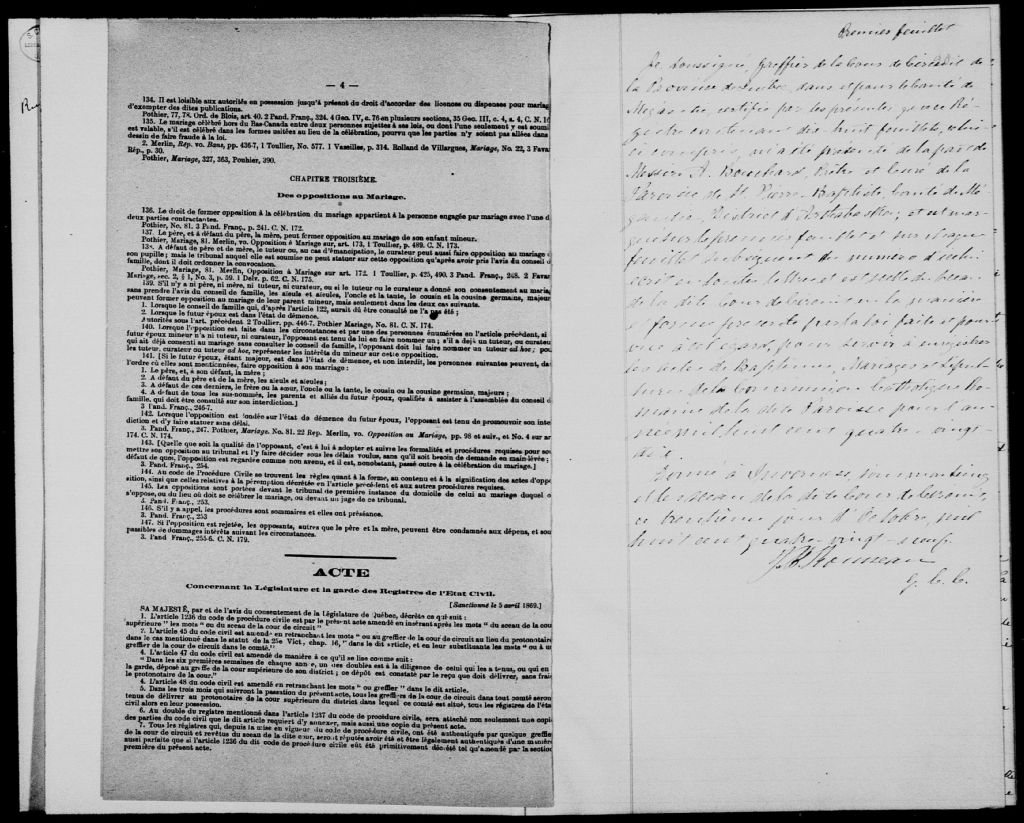 — 4 —
134. Il est loisible aux autorités en possession jusqu'à présent du droit d'accorder des licences ou dispenses pour mariag
d'exempter des dites publications.
Pothier, 77, 78. Ord. de Blois, art. 40. 2 Pand. Franç., 324. 4 Geo. IV, c. 76 en plusieurs sections, 35 Geo. III, c. 4, s. 4, C. N. 1
135. Le mariage célébré hors du Bas-Canada entre deux personnes sujettes à ses lois, ou dont l'une seulement y est soumi
est valable, s'il est célébré dans les formes usitées au lieu de la célébration, pourvu que les parties n'y soient pas allées dans
dessein de faire fraude à la loi.
2. Merlin, Rép. vo. Bans, pp. 436-7, 1 Toullier, No. 577. 1 Vaseilles, p. 314. Rolland de Villargues, Mariage, No. 22, 3 Fava
Rép., p. 30.
Pothier, Mariage, 327, 363, Pouhier, 290.
CHAPITRE TROISIÈME.
Des oppositions au Mariage.
136. Le droit de former opposition à la célébration du mariage appartient à la personne engagée par mariage avec l'une d
deux parties contractantes.
Pothier, No. 81. 3 Pand. Franç., p. 241. C. N. 172.
137. Le père, et à défaut du père, la mère, peut former opposition au mariage de son enfant mineur.
Pothier, Mariage, 81. Merlin, vo. Opposition à Mariage, sur art. 173, 1 Toullier, p. 489. C. N. 173.
138. A défaut de père et de mère, le tuteur ou, au cas d'émancipation, le curateur peut aussi faire opposition au mariage d
son pupille; mais le tribunal auquel elle est soumise ne peut statuer sur cette opposition qu'après avoir pris l'avis du conseil d
famille, dont il doit ordonner la convocation.
Pothier, Mariage, 81. Merlin, Opposition à Mariage sur art. 172. 1 Toullier, p. 425, 490. 3 Pand. Franç., 248. 2 Favar
Mariage, sec. 2, § 1, No. 3, p. 59. 1 Delv. p. 62. C. N. 175.
139. S'il n'y a ni père, ni mère, ni tuteur, ni curateur, ou si le tuteur ou le curateur a donné son consentement au maria
sans prendre l'avis du conseil de famille, les aïeuls et aïeules, l'oncle et la tante, le cousin et la cousine germains, majeur
peuvent former opposition au mariage de leur parent mineur, mais seulement dans les deux cas suivants:
1. Lorsque le conseil de famille qui, d'après l'article 122, aurait dû être consulté ne l'a pas été;
2. Lorsque le futur époux est dans l'état de démence.
Autorités sous l'art. précédent 2 Toullier, pp. 446-7. Pothier Mariage, No. 81. C. N. 174.
140. Lorsque l'opposition est faite dans les circonstances et par une des personnes énumérées en l'article précédent, si
futur époux mineur n'a ni tuteur, ni curateur, l'opposant est tenu de lui en faire nommer un; s'il a déjà un tuteur, ou curateu
qui ait déjà consenti au mariage sans consulter le conseil de famille, l'opposant doit lui faire nommer un tuteur ad hoc; pou
les tuteur, curateur ou tuteur ad hoc, représenter les intérêts du mineur sur cette opposition.
141. [Si le futur époux, étant majeur, est dans l'état de démence, et non interdit, les personnes suivantes peuvent, da
l'ordre où elles sont mentionnées, faire opposition à son mariage:
1. Le père, et, à son défaut, la mère;
2. A défaut du père et de la mère, les aïeuls et aïeules;
3. A défaut de ces derniers, le frère ou la sœur, l'oncle ou la tante, le cousin ou la cousine germains, majeurs;
4. A défaut de tous les sus-nommés, les parents et alliés du futur époux, qualifiés à assister à l'assemblée du conseil d
famille, qui doit être consulté sur son interdiction.]
3 Pand. Franç., 246-7.
142. Lorsque l'opposition est fondée sur l'état de démence du futur époux, l'opposant est tenu de promouvoir son inte
diction et d'y faire statuer sans délai.
3. Pand. Franç., 247. Pothier, Mariage. No. 81. 22 Rep. Merlin, vo. Opposition au Mariage, pp. 98 et suiv., et No. 4 sur ar
174. C. N. 174.
143. [Quelle que soit la qualité de l'opposant, c'est à lui à adopter et suivre les formalités et procédures requises pour so
mettre son opposition au tribunal et l'y faire décider sous les délais voulus, sans qu'il soit besoin de demande en main-levée;
défaut de quoi, l'opposition est regardée comme non avenu, et il est, nonobstant, passé outre à la célébration du mariage.]
3. Pand. Franç., 254.
144. Au code de Procédure Civile se trouvent les règles quant à la forme, au contenu et à la signification des actes d'oppo
sition, ainsi que celles relatives à la péremption décrétée en l'article précédent et aux autres procédures requises.
145. Les oppositions sont portées devant le tribunal de première instance du domicile de celui au mariage duquel o
s'oppose, ou du lieu où doit se célébrer le mariage, ou devant un juge de ce tribunal.
3. Pand. Franç., 253.
146. S'il y a appel, les procédures sont sommaires et elles ont préséance.
3. Pand. Franç., 253
147. Si l'opposition est rejetée, les opposants, autres que le père et la mère, peuvent être condamnés aux dépens, et son
passibles de dommages intérêts suivant les circonstances.
3. Pand. Franç., 255-6. C. N. 179.
ACTE
Concernant la Législature et la garde des Registres de l'Etat Civil.
[Sanctionné le 5 avril 1869.]
SA MAJESTÉ, par et de l'avis du consentement de la Législature de Québec, décrète ce qui suit:
1. L'article 1236 du code de procédure civile est par le présent acte amendé en insérant après les mots " du sceau de la cou
supérieure " les mots " ou du sceau de la cour de circuit "
2. L'article 45 du code civil est amendé en retranchant les mots " ou au greffier de la cour de circuit au lieu du protonotaire
dans le cas mentionné dans le statut de la 25e Vict., chap. 16, " dans le dit article, et en leur substituants les mots " ou à u
greffier de la cour de circuit dans le comté."
4. L'article 47 du code civil est amendé de manière à ce qu'il se lise comme suit:
" Dans les six premières semaines de chaque année, un des doubles est à la diligence de celui qui les a tenus, ou qui en
la garde, déposé au greffe de la cour supérieure de son district; ce dépôt est constaté par le reçu que doit délivrer, sans frai
le protonotaire de la cour."
4. L'article 48 du code civil est amendé en retranchant les mots " ou greffier " dans le dit article.
5. Dans les trois mois qui suivront la passation du présent acte, tous les greffiers de la cour de circuit dans tout comté seron
tenus de délivrer au protonotaire de la cour supérieure du district dans lequel ce comté est situé, tous les registres de l'éta
civil alors en leur possession.
6. Au double du registre mentionné dans l'article 1237 du code de procédure civile, sera attaché non seulement une copi
des parties du code civil que le dit article requiert d'y annexer, mais aussi une copie du présent acte.
7. Tous les régistres qui, depuis la mise en vigueur du code de procédure civile, ont été authentiqués par quelque greffie
de la cour de circuit et revêtus du sceau de la dite cour, seront réputés avoir été et être légalement authentiqués d'une manièr
aussi parfaite que si l'article 1236 du dit code de procédure civile eût été primitivement décrété tel qu'amendé par la section
première du présent acte.
Premier feuillet
Je, Soussigné, Greffier de la Cour de Circuit de
la Province de Québec, dans et pour le Comté de
Mégantic certifie par les présentes, que ce Ré-
gistre contenant dix-huit feuillets, celui-
ci compris, m'a été présenté de la part de
Messire A. Bouchard, Prêtre et Curé de la
Paroisse de St Pierre Baptiste, Comté de Mé-
gantic, District d'Arthabaska; et est mar-
qué sur le premier feuillet et sur chaque
feuillet subséquent du numéro d'icelui
écrit en toutes lettres et est scellé du sceau
de la dite Cour de Circuit en la manière
forme prescrite par la loi faite et pour-
vue à cet égard, pour servir à enregistrer
les actes de Baptêmes, Mariages et Sépul-
tures de la communion Catholique Ro-
maine de la dite Paroisse pour l'an-
née mil huit cent quatre-vingt-
dix.
Donné à Inverness, sous mon seing
et le sceau de la dite Cour de Circuit,
ce trentième jour d'Octobre, mil
huit cent quatre-vingt-neuf.
G. C. C.